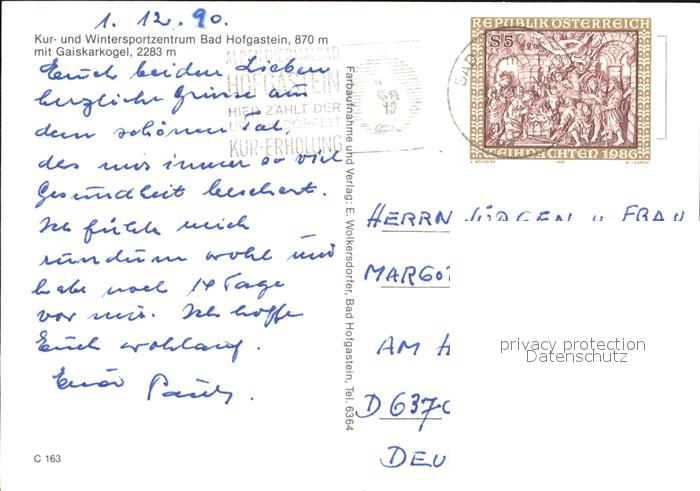 1. 12. 90.
Kur- und Wintersportzentrum Bad Hofgastein, 870 m
mit Gaiskarkogel, 2283 m
Euch beiden Lieben
herzliche Grüsse aus
dem schönen Tal,
das uns immer so viel
Gesundheit beschert.
Ich fühle mich
rundum wohl und
habe noch 14 Tage
vor mir. Ich hoffe
Euch wohlauf.
C 163
Farbaufnahme und Verlag: E. Wolkersdorfer, Bad Hofgastein, Tel. 6364
HOFGASTEIN
HIER ZÄHLT DER
KUR-ERHOLUNG
BAD
REPUBLIK ÖSTERREICH
S5
WEIHNACHTEN 1986
HERRN JÜRGEN u FRAU
MARGOT
AM
D 637
DEU
privacy protection
Datenschutz